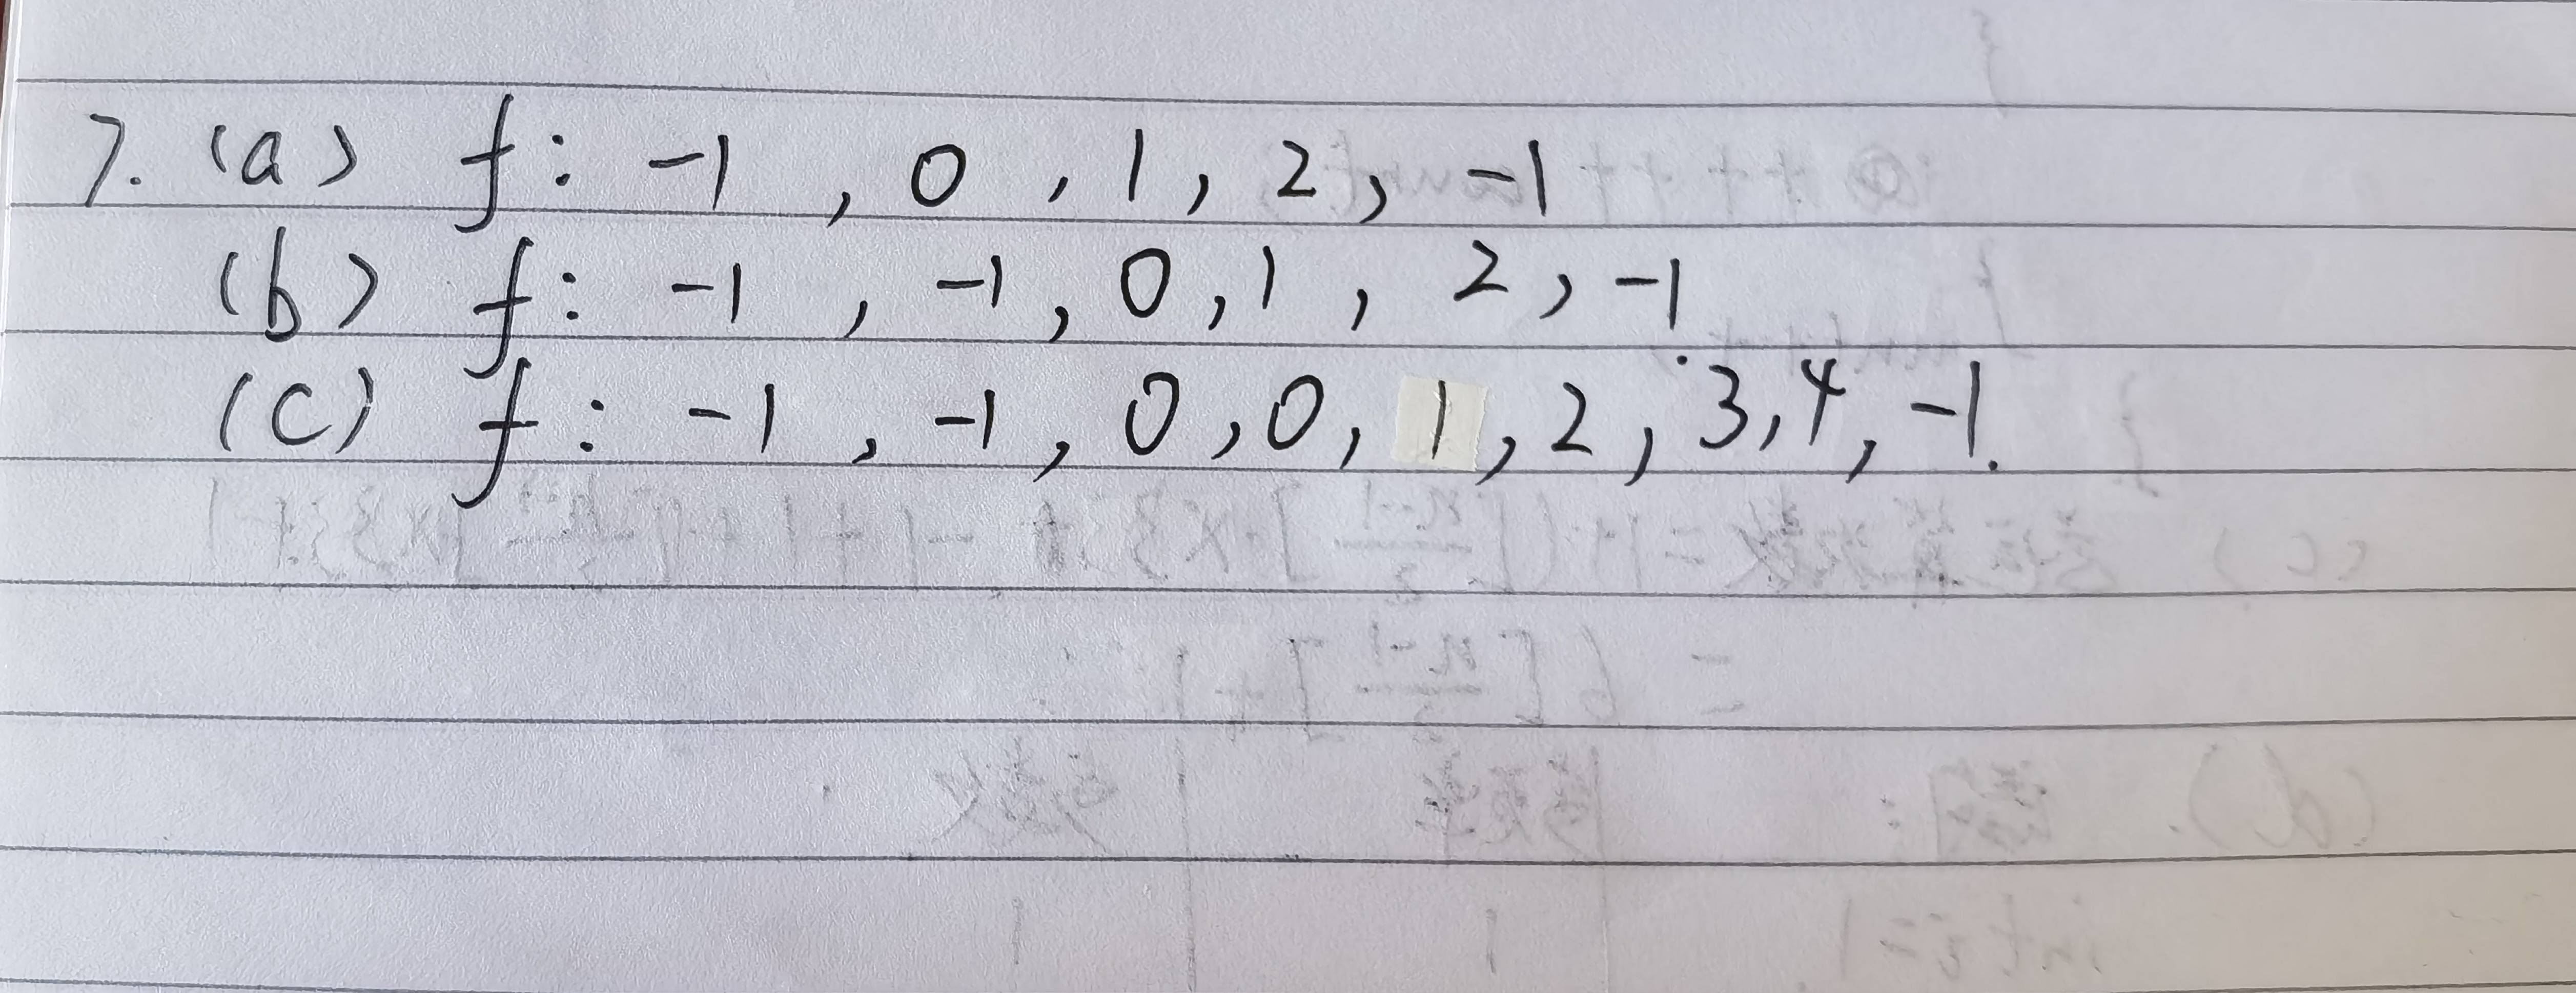 7. (a) f: -1, 0, 1, 2, -1
(b) f: -1, -1, 0, 1, 2, -1
(c) f: -1, -1, 0, 0, 1, 2, 3, 4, -1.